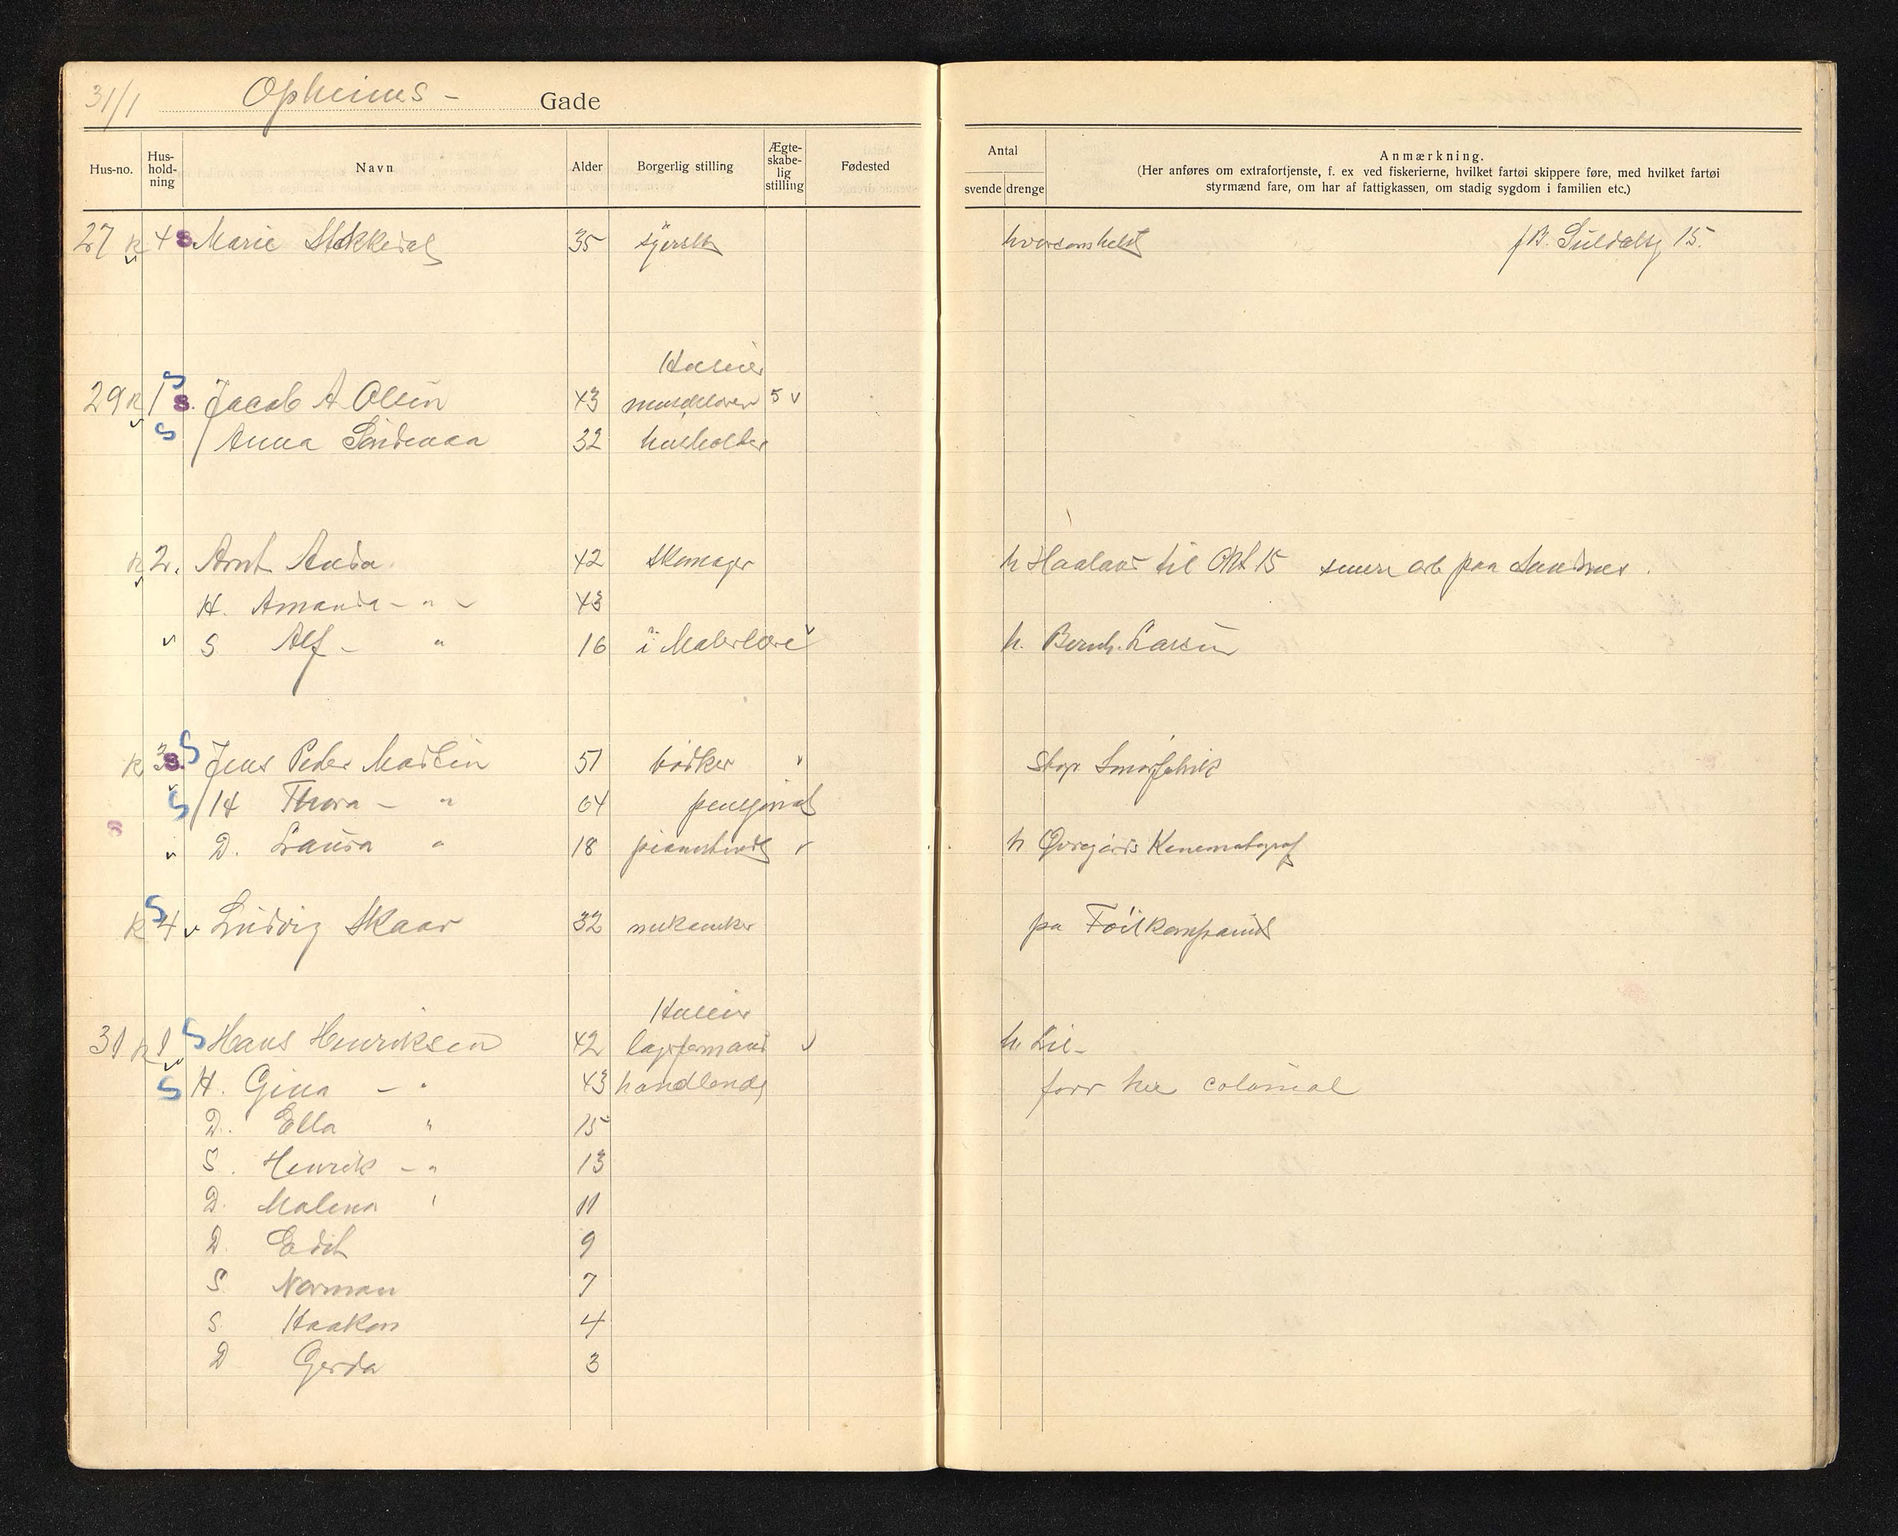 31/1 Opheims - Gade
Hus-no. Hus-hold-ning Navn Alder Borgerlig stilling Ægte-skabe-lig stilling Fødested
Antal svende drenge Anmærkning.
(Her anføres om extrafortjenste, f. ex ved fiskerierne, hvilket fartøi skippere føre, med hvilket fartøi
styrmænd fare, om har af fattigkassen, om stadig sygdom i familien etc.)
27 k 4 s Marie Stokkedal 35 syerske hvorsomhelst f B. Suldalsg 15.
Huseier
29 k 1 S s. Jacob A Olsen 43 5 v
S Anna 32 husholder
k 2. Arnt Auda 42 Skomager h Haaland til Okt 15 senere arb paa Sandnes.
H. Amanda - " - 43
v S Alf - " 16 i Malerlære v h. Bernh. Larsen
k 3 s. S Jens Peder Madsen 51 bødker v Stav Smørfabrik
S H Thora - " 64 pensjonat
s v D. Laura " 18 v h Kinematograf
k S 4 v Ludvig Skaar 32 mekaniker pa Føilkompaniet
Huseier
31 k 1 S Hans Henriksen 42 lagerformand v h. Lie-
S H. Gina - " 43 handlende forr her colonial
D. Ella " 15
S. Henrik - " 13
D. Malena " 11
D. Edit 9
S Norman 7
S. Haakon 4
D Gerda 3